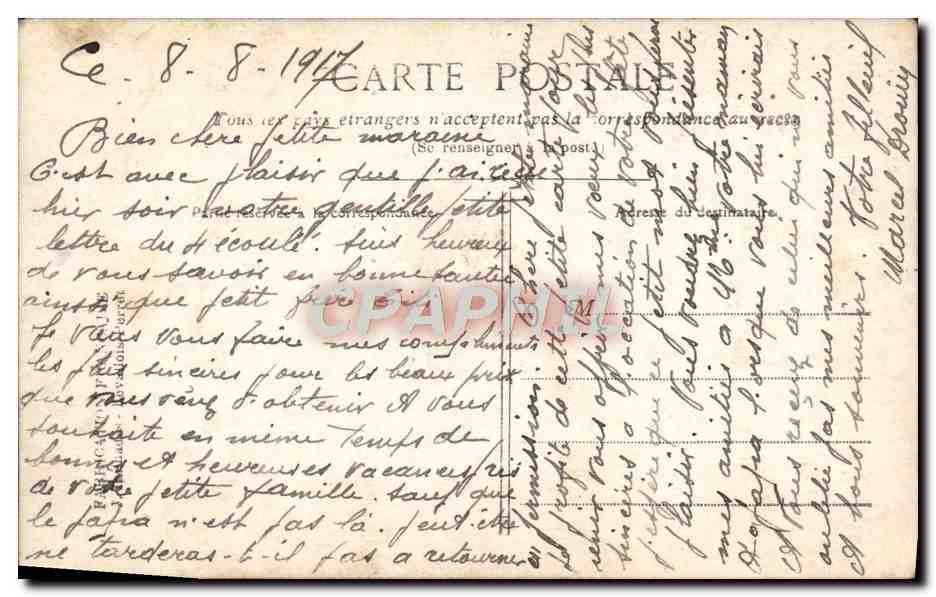 Ce - 8 - 8 - 1917
CARTE POSTALE
Tous les pays étrangers n'acceptent pas la correspondance au recto
(Se renseigner à la poste)
Partie réservée à la correspondance
Adresse du destinataire
FABRICATION FRANÇAISE
CPAPHIL
M
Bien chère petite maraine
C'est avec plaisir que j'ai reçu
hier soir votre gentille petite
lettre du écoulé. Suis heureux
de vous savoir en bonne santé
ainsi que petit
Je vais vous faire mes compliments
les plus sincères pour les beaux prix
que vous venez d'obtenir et vous
souhaite en même temps de
bonnes et heureuses vacances près
de votre petite famille. sauf que
le papa n'est pas là. peut être
ne tarderas-t-il pas a retourner
en permission. Chère petite maraine
Je profite de cette petite carte pour
venir vous offrir mes voeux les plus
sincères a l'occasion de votre fête
j'espère que ce petit mot vous feras
plaisir. Vous voudrez bien présenter
mes amitiés a Mme votre maman
et a papa lorsque vous lui écrirais
et vous recevez de celui qui ne vous
oublie pas mes meilleurs amitiés
et bons souvenirs. Votre filleul
Marcel Drouin